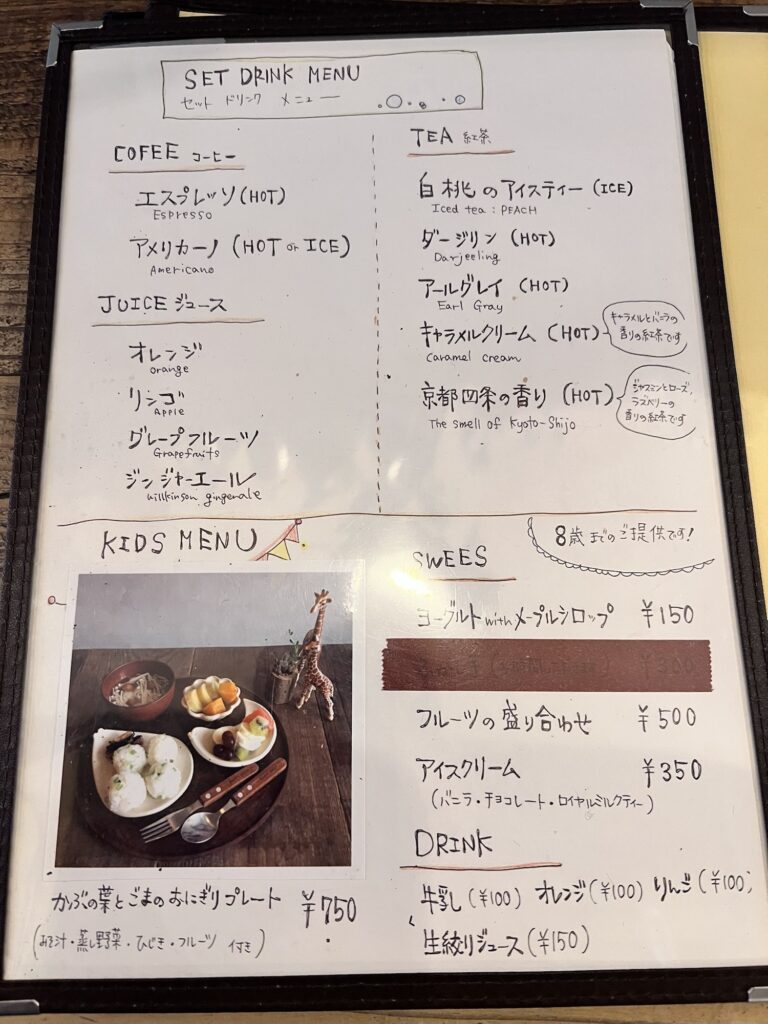 SET DRINK MENU
セット ドリンク メニュー
COFEE コーヒー
エスプレッソ (HOT)
Espresso
アメリカーノ (HOT or ICE)
Americano
JUICE ジュース
オレンジ
orange
リンゴ
Apple
グレープフルーツ
Grapefruits
ジンジャーエール
willkinson gingerale
TEA 紅茶
白桃のアイスティー (ICE)
Iced tea : PEACH
ダージリン (HOT)
Darjeeling
アールグレイ (HOT)
Earl Gray
キャラメルクリーム (HOT)
caramel cream
キャラメルとバニラの
香りの紅茶です
京都四条の香り (HOT)
The smell of Kyoto-Shijo
ジャスミンとローズ,
ラズベリーの
香りの紅茶です
KIDS MENU
8歳までのご提供です!
かぶの葉とごまのおにぎりプレート ¥750
(みそ汁・蒸し野菜・ひじき・フルーツ 付き)
SWEES
ヨーグルトwithメープルシロップ ¥150
フルーツの盛り合わせ ¥500
アイスクリーム ¥350
(バニラ・チョコレート・ロイヤルミルクティー)
DRINK
牛乳 (¥100) オレンジ (¥100) りんご (¥100)
生絞りジュース (¥150)